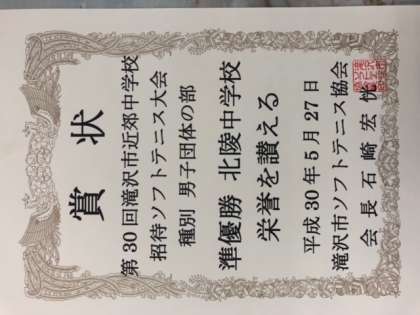 賞状
第30回滝沢市近郊中学校
招待ソフトテニス大会
種別 男子団体の部
準優勝 北陵中学校
栄誉を讃える
平成30年5月27日
滝沢市ソフトテニス協会
会長 石崎宏悦